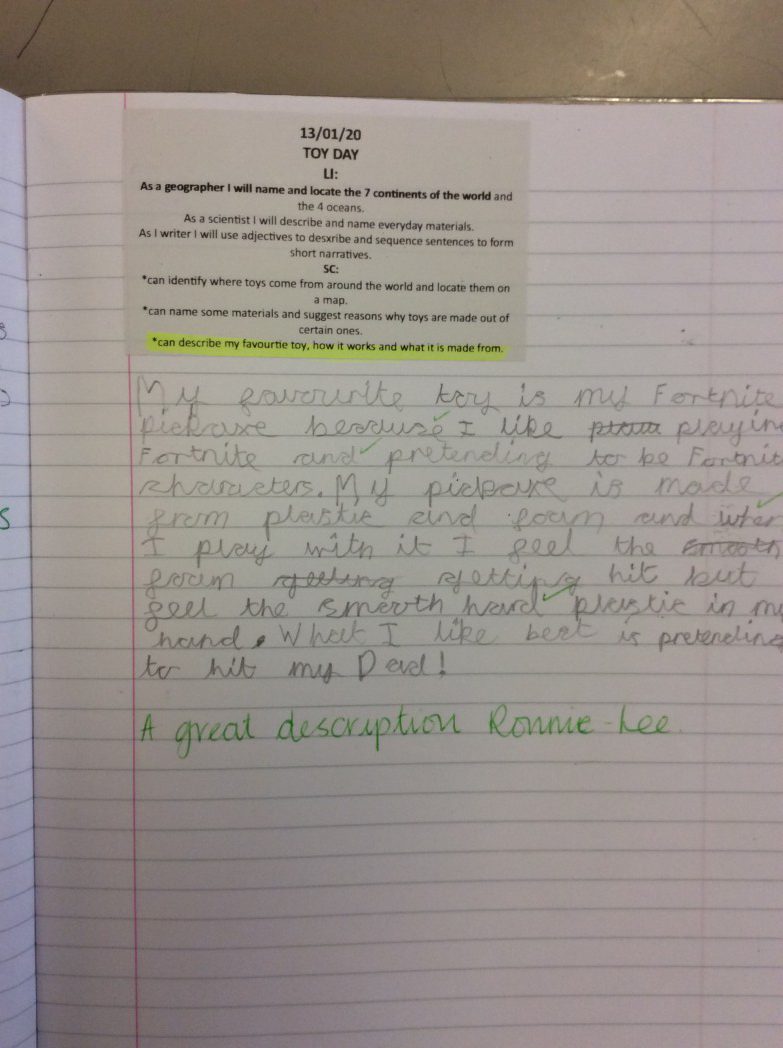 13/01/20
TOY DAY
LI:
As a geographer I will name and locate the 7 continents of the world and
the 4 oceans.
As a scientist I will describe and name everyday materials.
As I writer I will use adjectives to desxribe and sequence sentences to form
short narratives.
SC:
*can identify where toys come from around the world and locate them on
a map.
*can name some materials and suggest reasons why toys are made out of
certain ones.
*can describe my favourtie toy, how it works and what it is made from.
My favourite toy is my Fortnite
pickaxe because I like playin
Fortnite and pretending to be Fortnit
characters. My pickaxe is made
from plastic and foam and when
I play with it I feel the smooth
foam getting hit but
feel the smooth hard plastic in my
hand. What I like best is pretending
to hit my Dad!
A great description Ronnie-Lee.